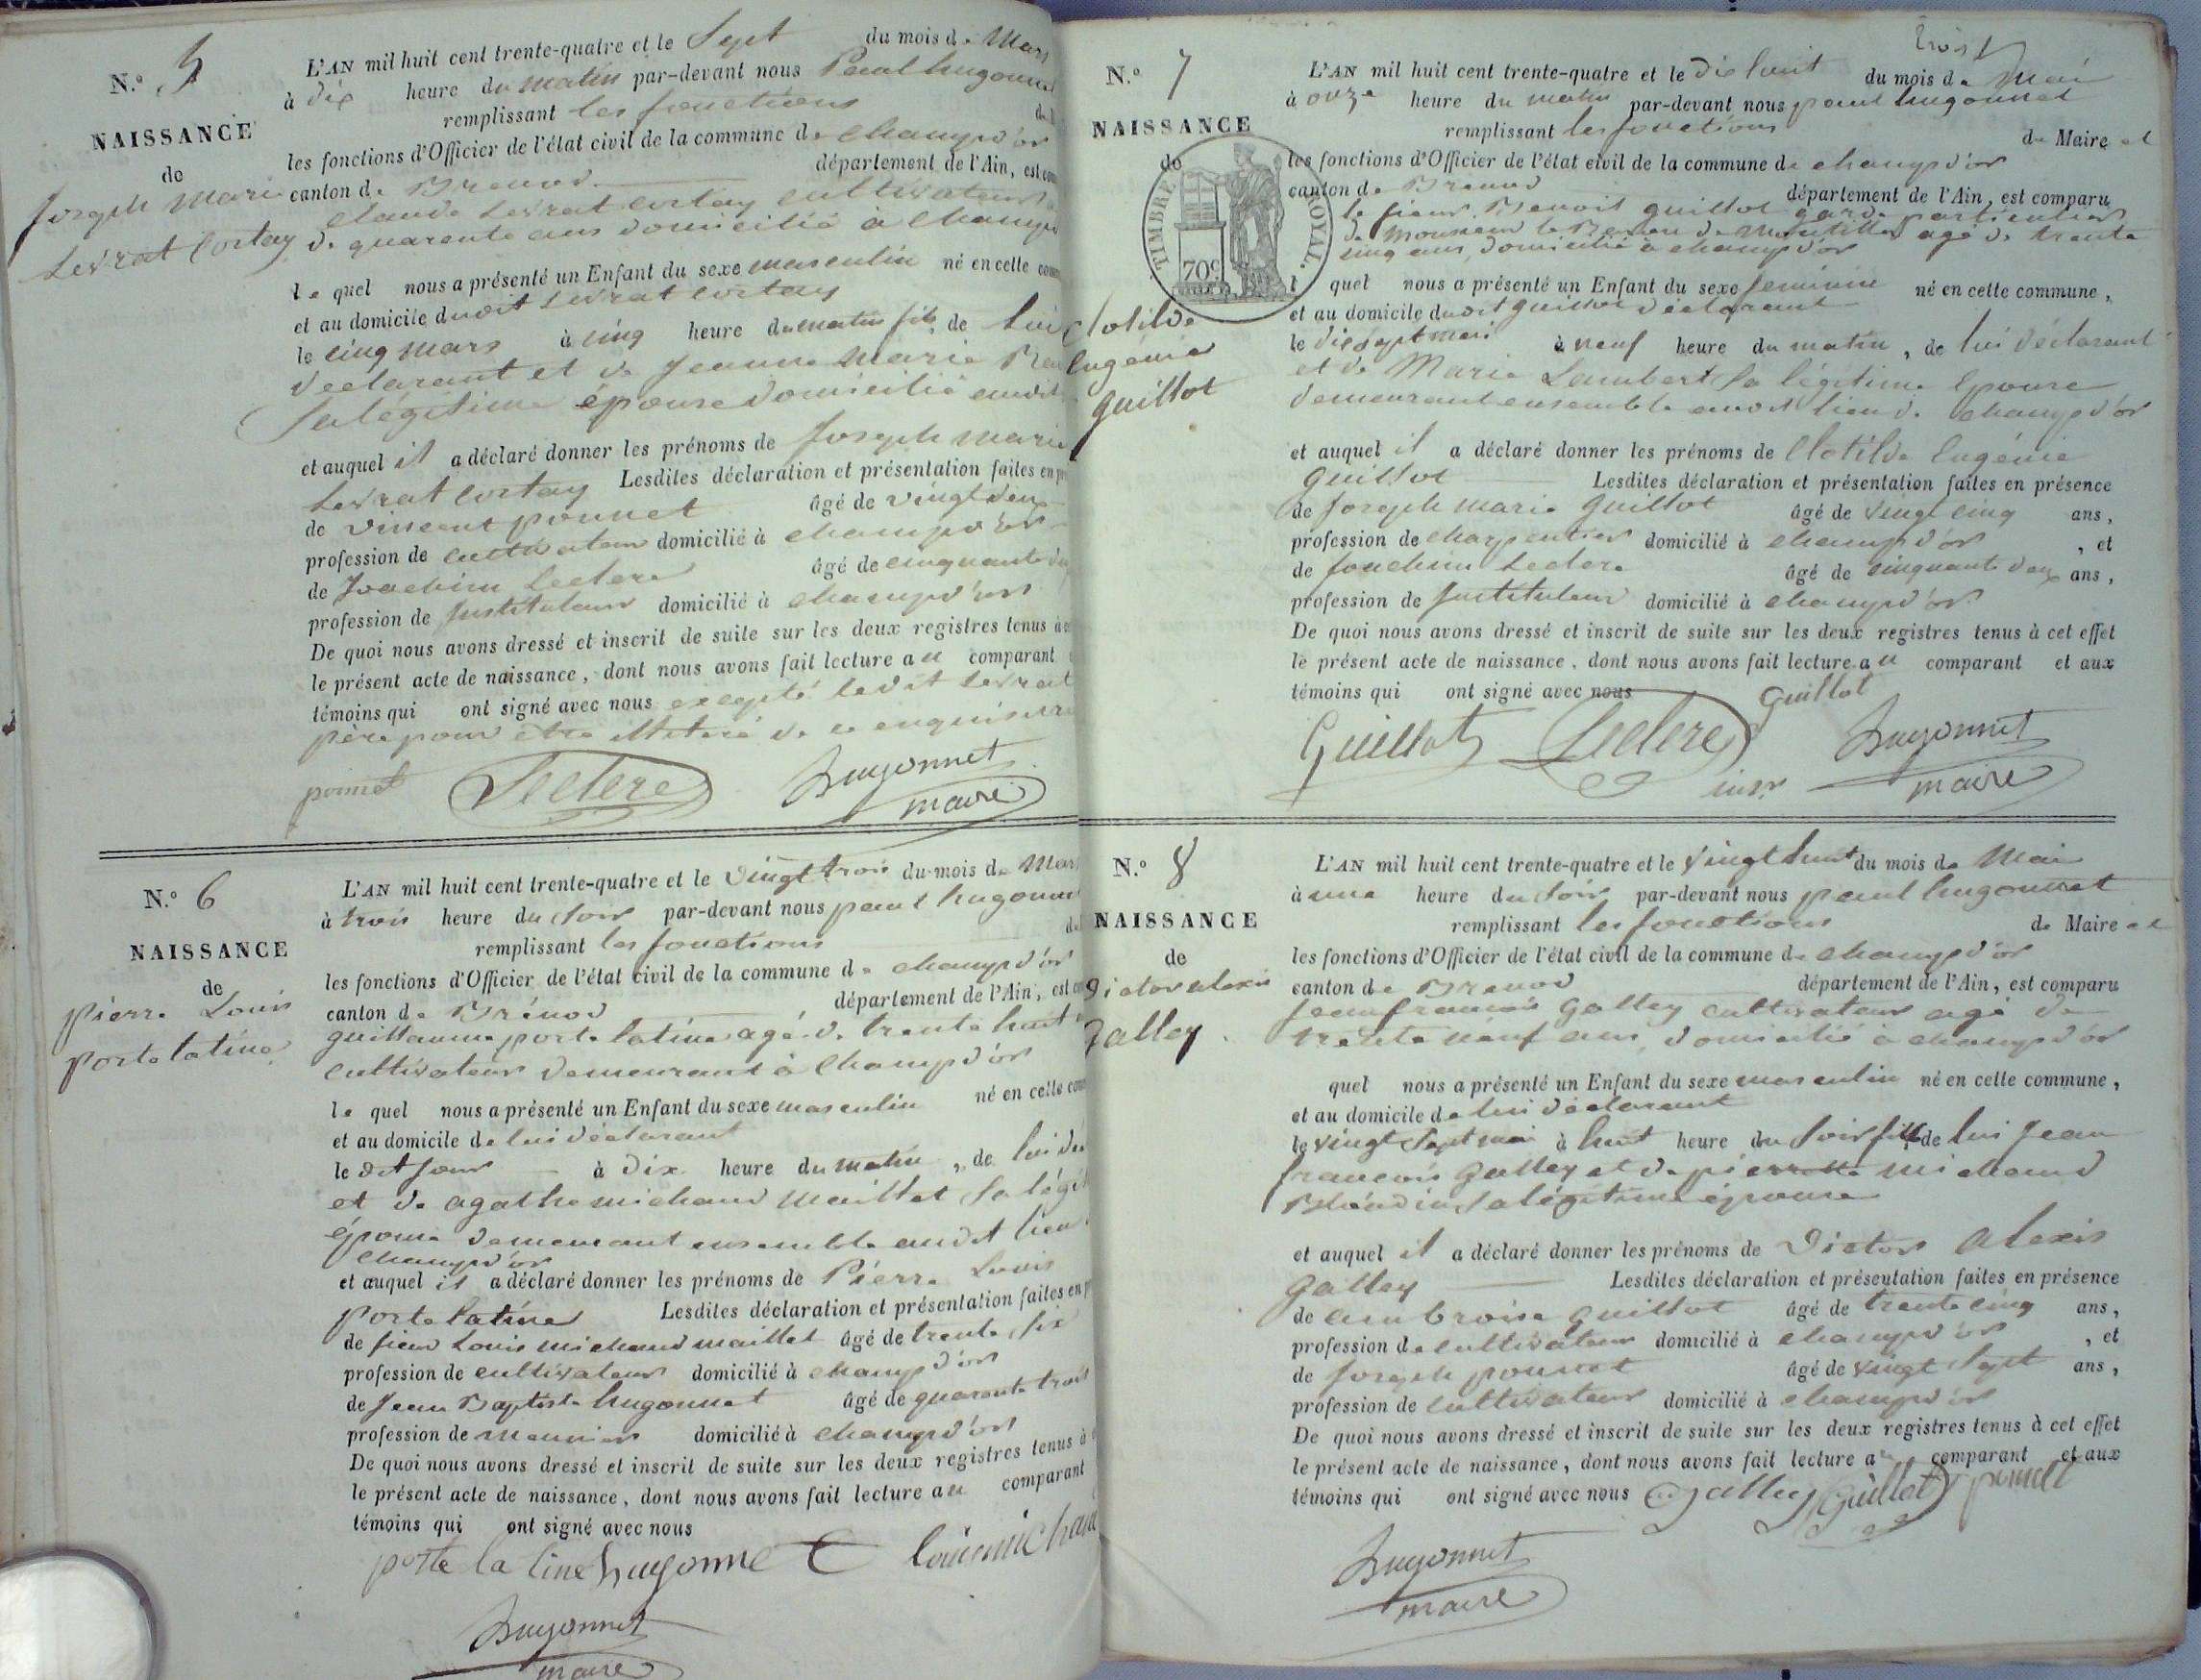 N.° 5
NAISSANCE
de
Joseph Marie
Levrat Cortay
L'AN mil huit cent trente-quatre et le Sept du mois de Mars
à dix heure du matin par-devant nous Paul hugonnet
remplissant les fonctions
les fonctions d'Officier de l'état civil de la commune de Champd'or
canton de Brenod département de l'Ain, est
Claude Levrat Cortay Cultivateur
de quarante ans domicilié à Champ
le quel nous a présenté un Enfant du sexe masculin né en cette
et au domicile dudit Levrat Cortay
le cinq mars à cinq heure du matin fils de Lui
declarant et de Jeanne Marie
Sa légitime épouse domicilié audit
et auquel il a déclaré donner les prénoms de Joseph Marie
Levrat Cortay Lesdites déclaration et présentation faites en
de Vincent ponnet âgé de vingt deux
profession de Cultivateur domicilié à champd'or
de Joachim Leclerc âgé de cinquante
profession de Instituteur domicilié à champd'or
De quoi nous avons dressé et inscrit de suite sur les deux registres tenus à
le présent acte de naissance, dont nous avons fait lecture au comparant
témoins qui ont signé avec nous excepté ledit Levrat
père pour être illiteré de ce enquis
ponnet Leclerc hugonnet
maire
N.° 6
NAISSANCE
de
Pierre Louis
porte latine
L'AN mil huit cent trente-quatre et le Vingt trois du mois de Mars
à trois heure du soir par-devant nous paul hugonnet
remplissant les fonctions
les fonctions d'Officier de l'état civil de la commune de champd'or
canton de Brénod département de l'Ain, est
guillaume porte latine agé de trente huit
Cultivateur demeurant à Champd'or
le quel nous a présenté un Enfant du sexe masculin né en cette
et au domicile de lui déclarant
le dit jour à dix heure du matin, de lui
et de agathe michaud maillet Sa
épouse demeurant ensemble audit lieu
champd'or
et auquel il a déclaré donner les prénoms de Pierre Louis
Porte latine Lesdites déclaration et présentation faites en
de sieur Louis michaud maillet âgé de trente six
profession de cultivateur domicilié à champd'or
de Jean Baptiste hugonnet âgé de quarante trois
profession de meunier domicilié à champd'or
De quoi nous avons dressé et inscrit de suite sur les deux registres tenus à
le présent acte de naissance, dont nous avons fait lecture au comparant
témoins qui ont signé avec nous
porte la tine hugonnet Louis michaud
hugonnet
maire
trois
N.° 7
NAISSANCE
de
Clotilde
Eugénie
guillot
TIMBRE ROYAL.
70c
L'AN mil huit cent trente-quatre et le dix huit du mois de Mai
à onze heure du matin par-devant nous paul hugonnet
remplissant les fonctions de Maire et
les fonctions d'Officier de l'état civil de la commune de champd'or
canton de Brenod département de l'Ain, est comparu
le sieur Benoit guillot garde particulier
de Monsieur le Baron de agé de trente
cinq ans, domicilié à champd'or
l quel nous a présenté un Enfant du sexe feminin né en cette commune,
et au domicile dudit guillot déclarant
le dix sept mai à neuf heure du matin, de lui déclarant
et de Marie Lambert Sa légitime Epouse
demeurant ensemble audit lieu de Champd'or
et auquel il a déclaré donner les prénoms de Clotilde Eugénie
guillot Lesdites déclaration et présentation faites en présence
de Joseph marie guillot âgé de vingt cinq ans,
profession de charpentier domicilié à champd'or , et
de Joachim Leclerc âgé de cinquante deux ans,
profession de Instituteur domicilié à champd'or
De quoi nous avons dressé et inscrit de suite sur les deux registres tenus à cet effet
le présent acte de naissance, dont nous avons fait lecture au comparant et aux
témoins qui ont signé avec nous guillot
Guillot Leclerc hugonnet
maire
N.° 8
NAISSANCE
de
Victor alexis
galley
L'AN mil huit cent trente-quatre et le vingt huit du mois de Mai
à une heure du soir par-devant nous paul hugonnet
remplissant les fonctions de Maire et
les fonctions d'Officier de l'état civil de la commune de champd'or
canton de Brenod département de l'Ain, est comparu
Jean françois Galley cultivateur agé de
trente neuf ans, domicilié à champd'or
quel nous a présenté un Enfant du sexe masculin né en cette commune,
et au domicile de lui déclarant
le vingt sept mai à huit heure du soir fils de lui Jean
françois galley et de pierrette michaud
Sa légitime épouse
et auquel il a déclaré donner les prénoms de Victor Alexis
galley Lesdites déclaration et présentation faites en présence
de ambroise guillot âgé de trente cinq ans,
profession de cultivateur domicilié à champd'or , et
de Joseph ponnet âgé de vingt sept ans,
profession de cultivateur domicilié à champd'or
De quoi nous avons dressé et inscrit de suite sur les deux registres tenus à cet effet
le présent acte de naissance, dont nous avons fait lecture au comparant et aux
témoins qui ont signé avec nous galley Guillot ponnet
hugonnet
maire